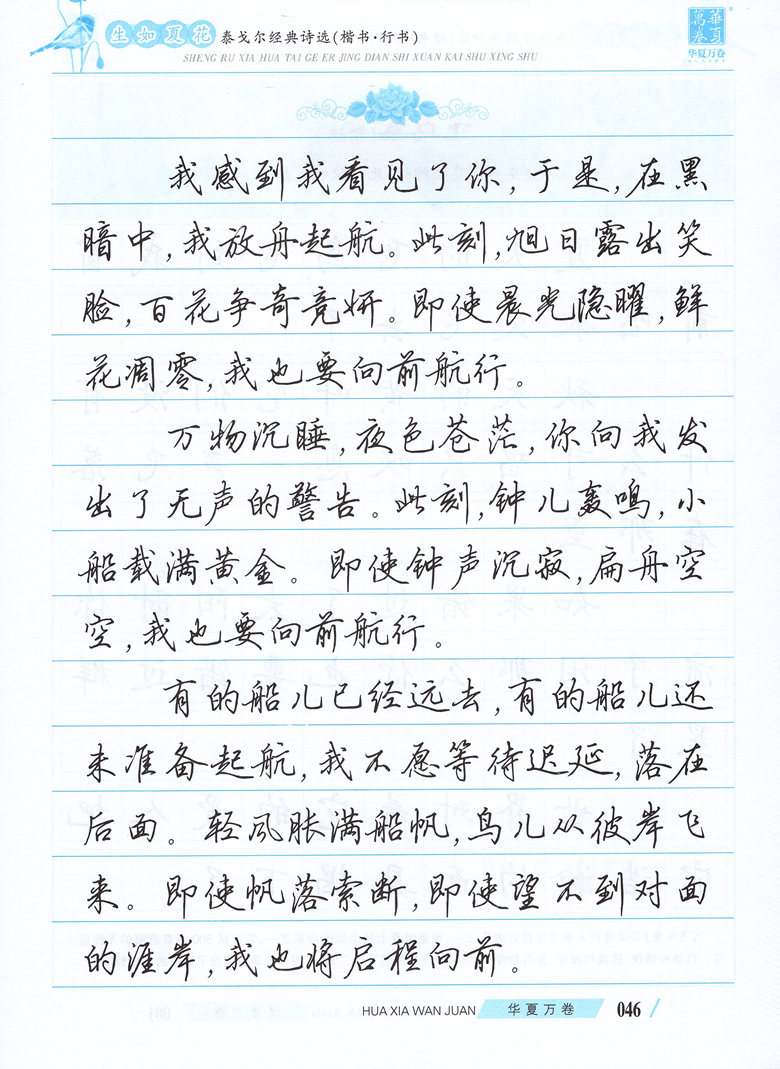 生如夏花 泰戈尔经典诗选(楷书·行书)
SHENG RU XIA HUA TAI GE ER JING DIAN SHI XUAN KAI SHU XING SHU
華夏萬卷
华夏万卷
我感到我看见了你,于是,在黑
暗中,我放舟起航。此刻,旭日露出笑
脸,百花争奇竞妍。即使晨光隐曜,鲜
花凋零,我也要向前航行。
万物沉睡,夜色苍茫,你向我发
出了无声的警告。此刻,钟儿轰鸣,小
船载满黄金。即使钟声沉寂,扁舟空
空,我也要向前航行。
有的船儿已经远去,有的船儿还
未准备起航,我不愿等待迟延,落在
后面。轻风胀满船帆,鸟儿从彼岸飞
来。即使帆落索断,即使望不到对面
的涯岸,我也将启程向前。
HUA XIA WAN JUAN 华夏万卷 046